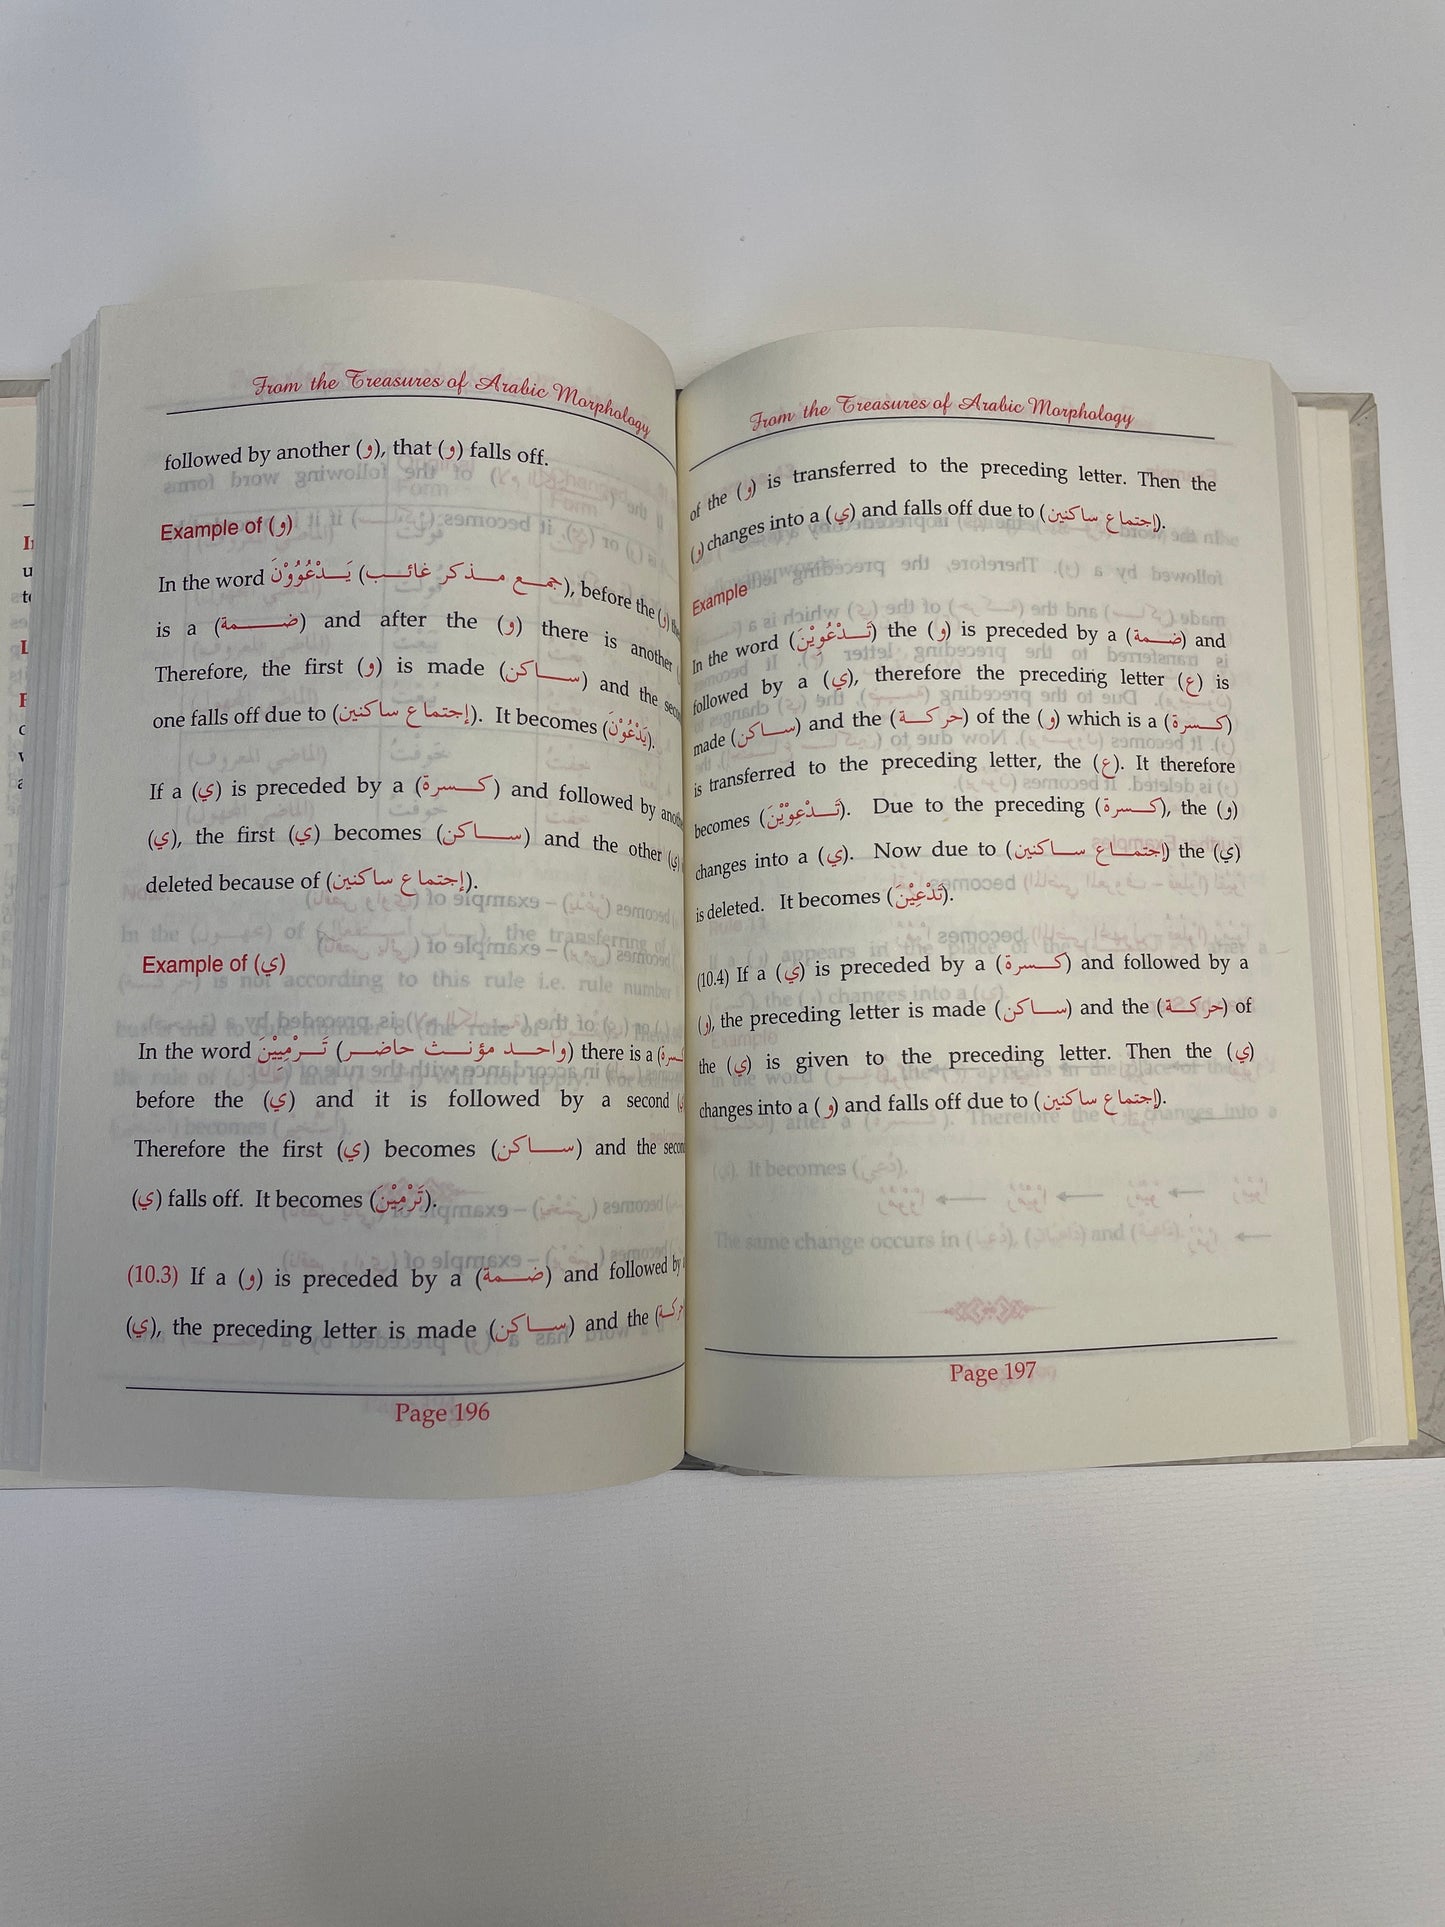 From the Treasures of Arabic Morphology
followed by another (و), that (و) falls off.
Example of (و)
In the word يَدْعُوُوْنَ (جمع مذكر غائب), before the (و)
is a (ضمة) and after the (و) there is another
Therefore, the first (و) is made (ساكن) and the
one falls off due to (إجتماع ساكنين). It becomes (يَدْعُوْنَ).
If a (ي) is preceded by a (كسرة) and followed by
(ي), the first (ي) becomes (ساكن) and the other (ي)
deleted because of (إجتماع ساكنين).
Example of (ي)
In the word تَرْمِيِيْنَ (واحد مؤنث حاضر) there is a
before the (ي) and it is followed by a second
Therefore the first (ي) becomes (ساكن) and the
(ي) falls off. It becomes (تَرْمِيْنَ).
(10.3) If a (و) is preceded by a (ضمة) and followed by
(ي), the preceding letter is made (ساكن) and the
Page 196
From the Treasures of Arabic Morphology
of the (و) is transferred to the preceding letter. Then the
(و) changes into a (ي) and falls off due to (إجتماع ساكنين).
Example
In the word (تَدْعُوِيْنَ) the (و) is preceded by a (ضمة) and
followed by a (ي), therefore the preceding letter (ع) is
made (ساكن) and the (حركة) of the (و) which is a (كسرة)
is transferred to the preceding letter, the (ع). It therefore
becomes (تَدْعِوْيْنَ). Due to the preceding (كسرة), the (و)
changes into a (ي). Now due to (إجتماع ساكنين) the (ي)
is deleted. It becomes (تَدْعِيْنَ).
(10.4) If a (ي) is preceded by a (كسرة) and followed by a
(و), the preceding letter is made (ساكن) and the (حركة) of
the (ي) is given to the preceding letter. Then the (ي)
changes into a (و) and falls off due to (إجتماع ساكنين).
Page 197